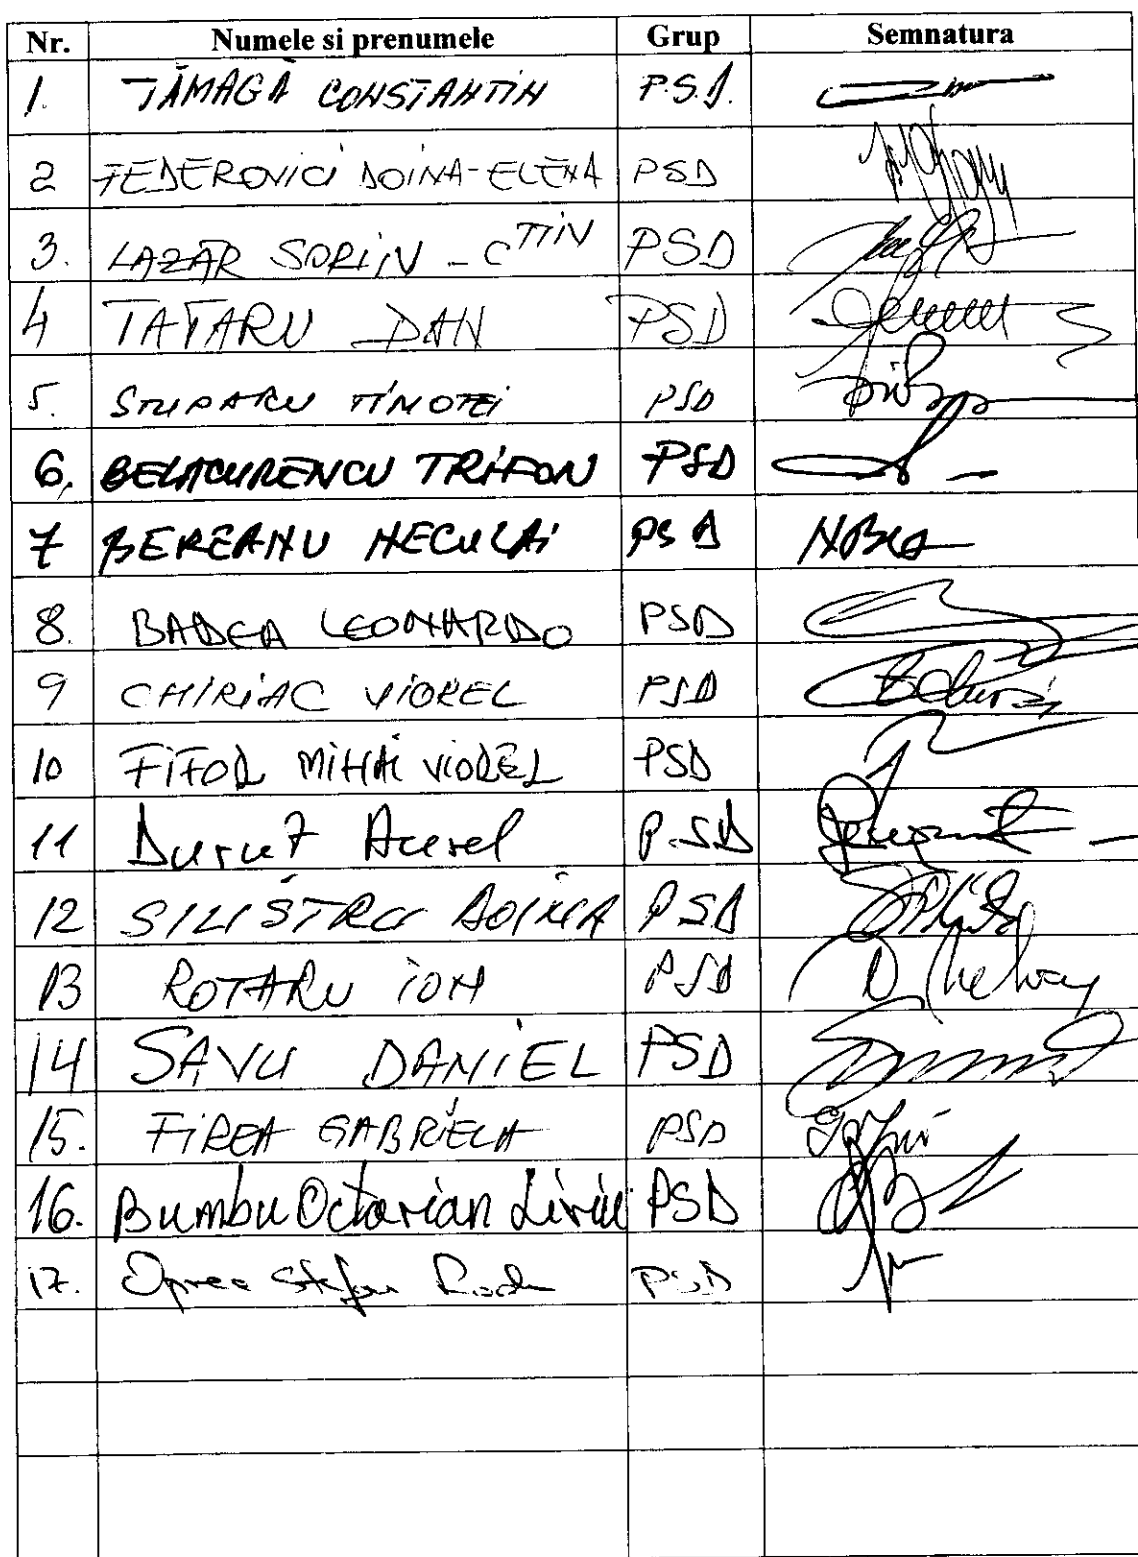 Nr. Numele si prenumele Grup Semnatura
1. TĂMAGĂ CONSTANTIN P.S.D.
2 FEDEROVICI DOINA-ELENA PSD
3. LAZĂR SORIN - CTIN PSD
4 TATARU DAN PSD
5. STUPARU TIMOTEI PSD
6. BELACURENCU TRIFON PSD
7 BEREANU NECULAI PSD
8. BADEA LEONARDO PSD
9 CHIRIAC VIOREL PSD
10 FIFOR MIHAI VIOREL PSD
11 Duruț Aurel P.SD
12 SILISTRU DOINA PSD
13 ROTARU ION PSD
14 SAVU DANIEL PSD
15. FIREA GABRIELA PSD
16. Bumbu Octavian Liviu PSD
17. Oprea Stefan Radu PSD